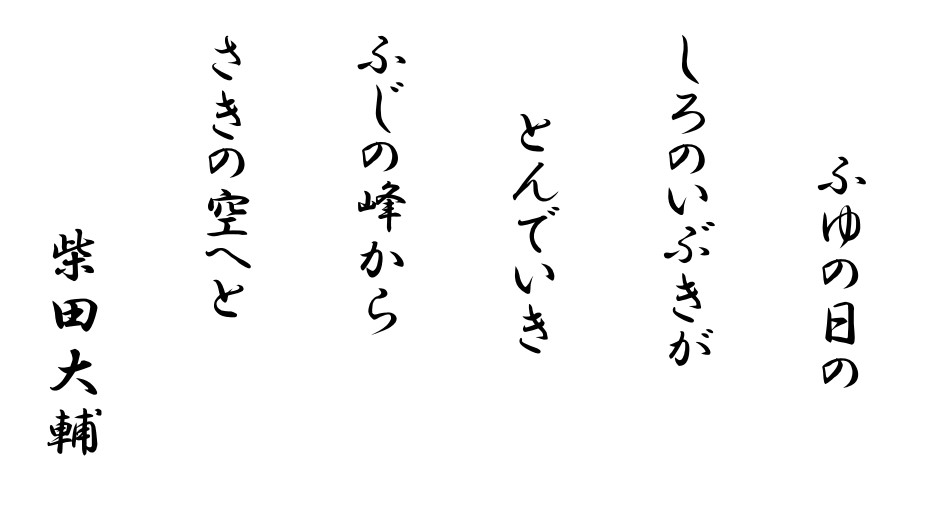 ふゆの日の
しろのいぶきが
とんでいき
ふじの峰から
さきの空へと
柴田大輔